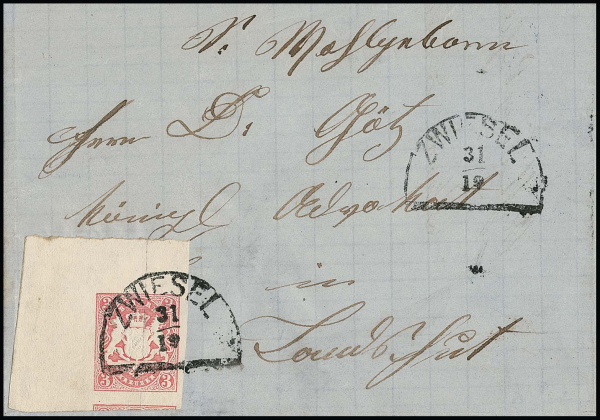 Sr. Wohlgeborn
Herrn D. Götz
königl Advokat
in
Landshut
ZWIESEL
31
10
ZWIESEL
31
10
3 3
3 3